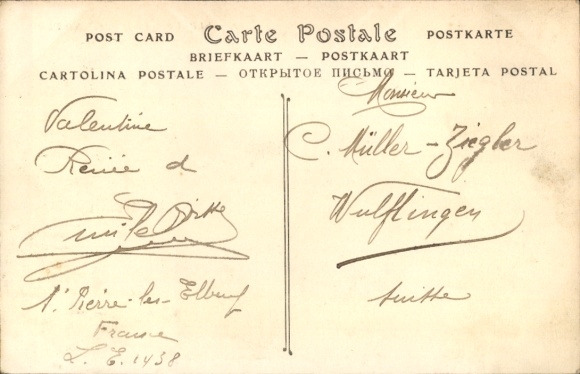 POST CARD Carte Postale POSTKARTE
BRIEFKAART — POSTKAART
CARTOLINA POSTALE — ОТКРЫТОЕ ПИСЬМО — TARJETA POSTAL
Valentine
Renée d
St Pierre-les-Elbeuf
France
L. E. 1438
Monsieur
C. Müller-Ziegler
Wulflingen
Suisse